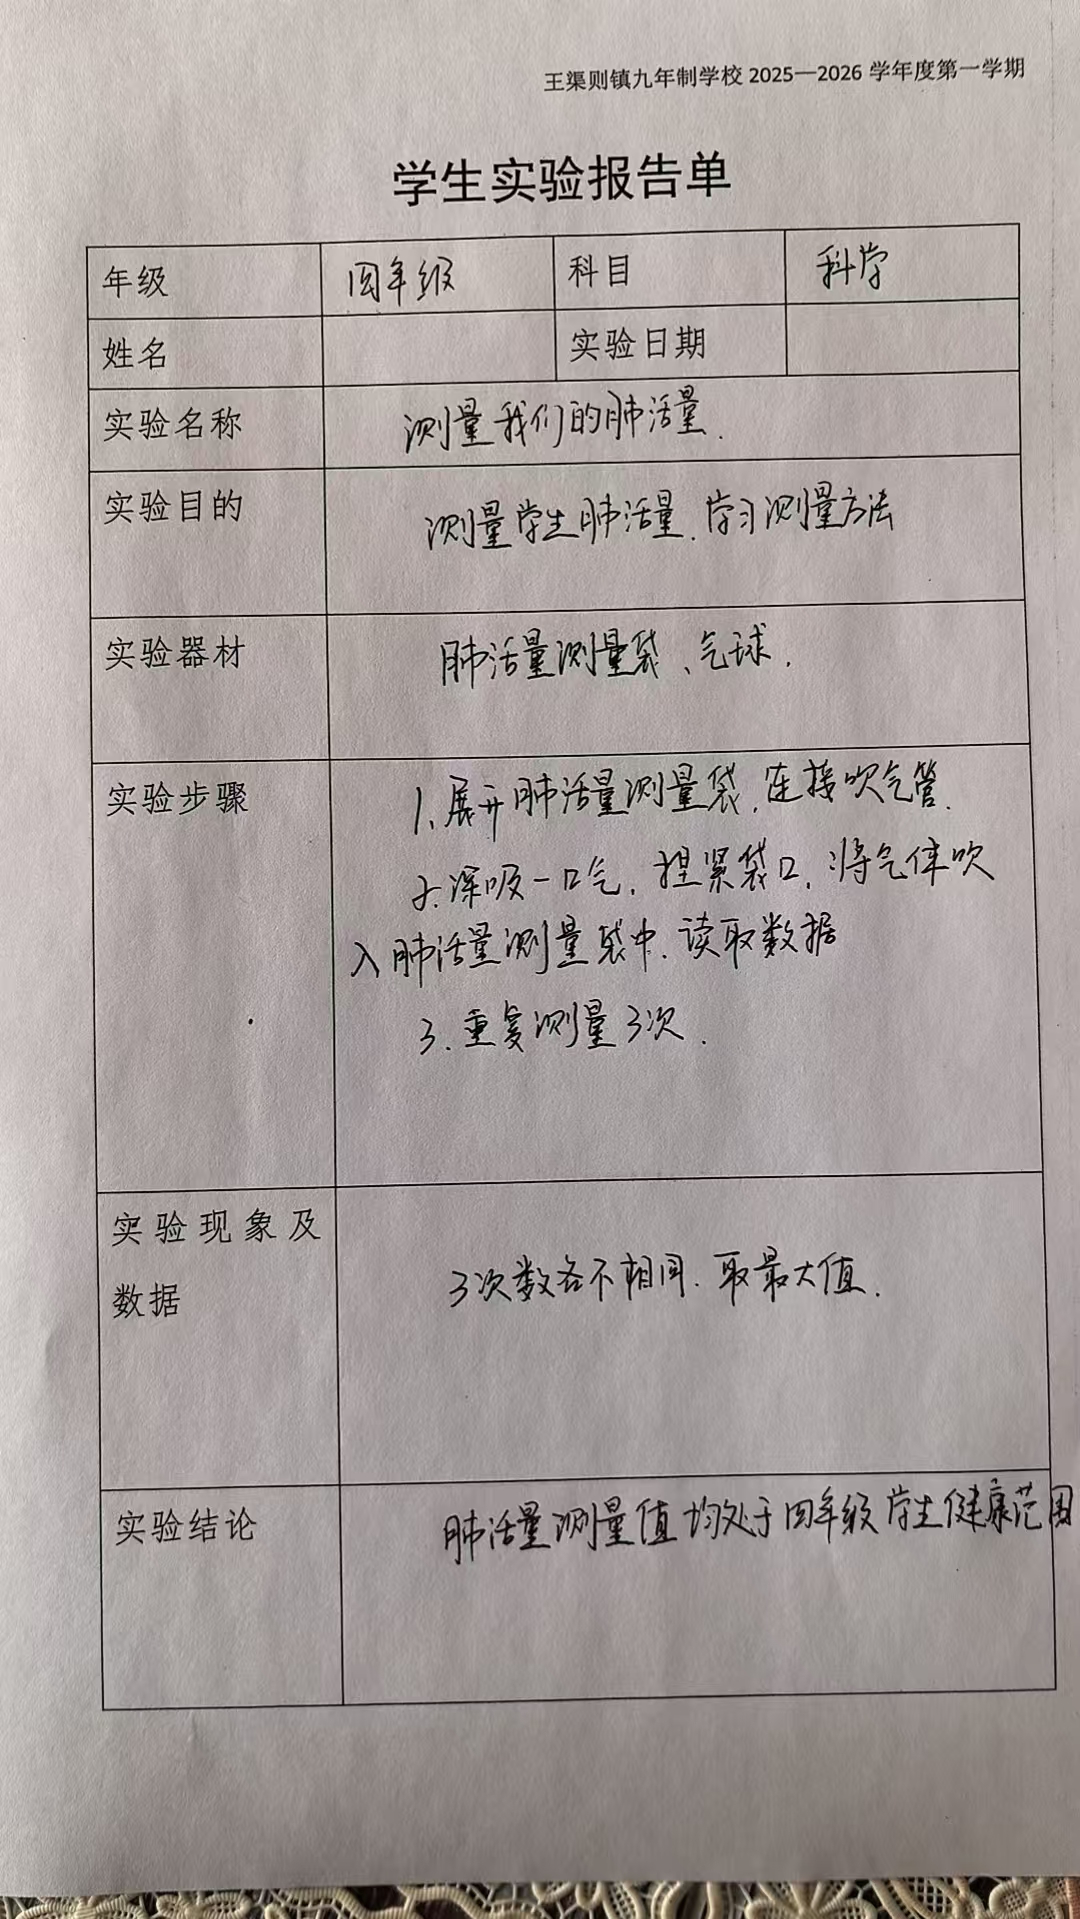 王渠则镇九年制学校 2025—2026 学年度第一学期
学生实验报告单
年级 四年级 科目 科学
姓名 实验日期
实验名称 测量我们的肺活量.
实验目的 测量学生肺活量.学习测量方法
实验器材 肺活量测量袋、气球.
实验步骤 1.展开肺活量测量袋,连接吹气管.
2.深吸一口气,捏紧袋口,将气体吹
入肺活量测量袋中.读取数据
3.重复测量3次.
实验现象及
数据 3次数各不相同.取最大值.
实验结论 肺活量测量值均处于四年级学生健康范围